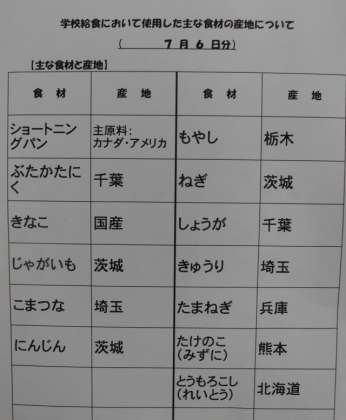 学校給食において使用した主な食材の産地について
（　7 月 6 日分）
【主な食材と産地】
食 材　産 地　食 材　産 地
ショートニン
グパン
主原料:
カナダ・アメリカ
もやし　栃木
ぶたかたに
く
千葉　ねぎ　茨城
きなこ　国産　しょうが　千葉
じゃがいも　茨城　きゅうり　埼玉
こまつな　埼玉　たまねぎ　兵庫
にんじん　茨城
たけのこ
（みずに）
熊本
とうもろこし
（れいとう）
北海道